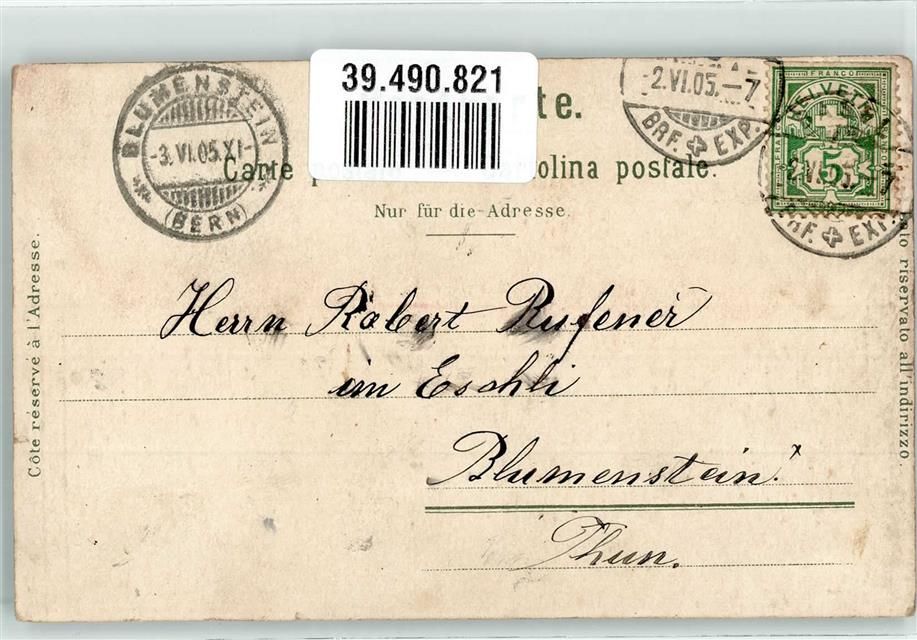 39.490.821
BLUMENSTEIN
-3.VI.05.XI-
(BERN)
-2.VI.05.-7
BRF. EXP.
FRANCO
HELVETIA
5
2.VI.05.-7
BRF. EXP.
te.
Carte p olina postale.
Nur für die-Adresse.
Côte réservé à l'Adresse.
Lato riservato all'indirizzo.
Herrn Robert Rufener
im Eschli
Blumenstein.
Thun.